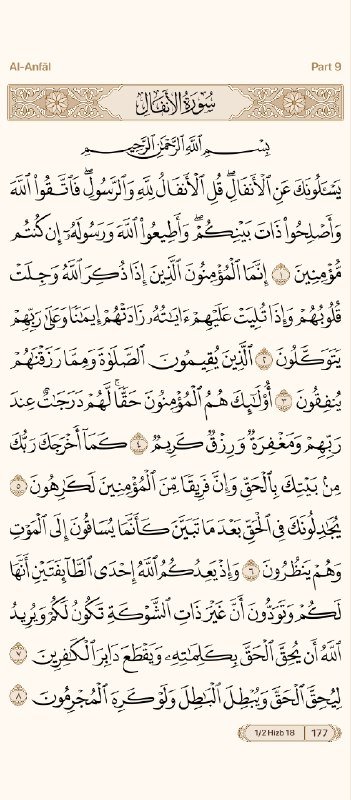 Al-Anfāl
Part 9
سُورَةُ الأَنفَالِ
بِسْمِ اللَّهِ الرَّحْمَٰنِ الرَّحِيمِ
يَسْـَٔلُونَكَ عَنِ ٱلْأَنفَالِۖ قُلِ ٱلْأَنفَالُ لِلَّهِ وَٱلرَّسُولِۖ فَٱتَّقُوا۟ ٱللَّهَ
وَأَصْلِحُوا۟ ذَاتَ بَيْنِكُمْۖ وَأَطِيعُوا۟ ٱللَّهَ وَرَسُولَهُۥٓ إِن كُنتُم
مُّؤْمِنِينَ ١ إِنَّمَا ٱلْمُؤْمِنُونَ ٱلَّذِينَ إِذَا ذُكِرَ ٱللَّهُ وَجِلَتْ
قُلُوبُهُمْ وَإِذَا تُلِيَتْ عَلَيْهِمْ ءَايَٰتُهُۥ زَادَتْهُمْ إِيمَٰنًا وَعَلَىٰ رَبِّهِمْ
يَتَوَكَّلُونَ ٢ ٱلَّذِينَ يُقِيمُونَ ٱلصَّلَوٰةَ وَمِمَّا رَزَقْنَٰهُمْ
يُنفِقُونَ ٣ أُو۟لَٰٓئِكَ هُمُ ٱلْمُؤْمِنُونَ حَقًّاۚ لَّهُمْ دَرَجَٰتٌ عِندَ
رَبِّهِمْ وَمَغْفِرَةٌ وَرِزْقٌ كَرِيمٌ ٤ كَمَآ أَخْرَجَكَ رَبُّكَ
مِنۢ بَيْتِكَ بِٱلْحَقِّ وَإِنَّ فَرِيقًا مِّنَ ٱلْمُؤْمِنِينَ لَكَٰرِهُونَ ٥
يُجَٰدِلُونَكَ فِى ٱلْحَقِّ بَعْدَ مَا تَبَيَّنَ كَأَنَّمَا يُسَاقُونَ إِلَى ٱلْمَوْتِ
وَهُمْ يَنظُرُونَ ٦ وَإِذْ يَعِدُكُمُ ٱللَّهُ إِحْدَى ٱلطَّآئِفَتَيْنِ أَنَّهَا
لَكُمْ وَتَوَدُّونَ أَنَّ غَيْرَ ذَاتِ ٱلشَّوْكَةِ تَكُونُ لَكُمْ وَيُرِيدُ
ٱللَّهُ أَن يُحِقَّ ٱلْحَقَّ بِكَلِمَٰتِهِۦ وَيَقْطَعَ دَابِرَ ٱلْكَٰفِرِينَ ٧
لِيُحِقَّ ٱلْحَقَّ وَيُبْطِلَ ٱلْبَٰطِلَ وَلَوْ كَرِهَ ٱلْمُجْرِمُونَ ٨
1/2 Hizb 18 | 177